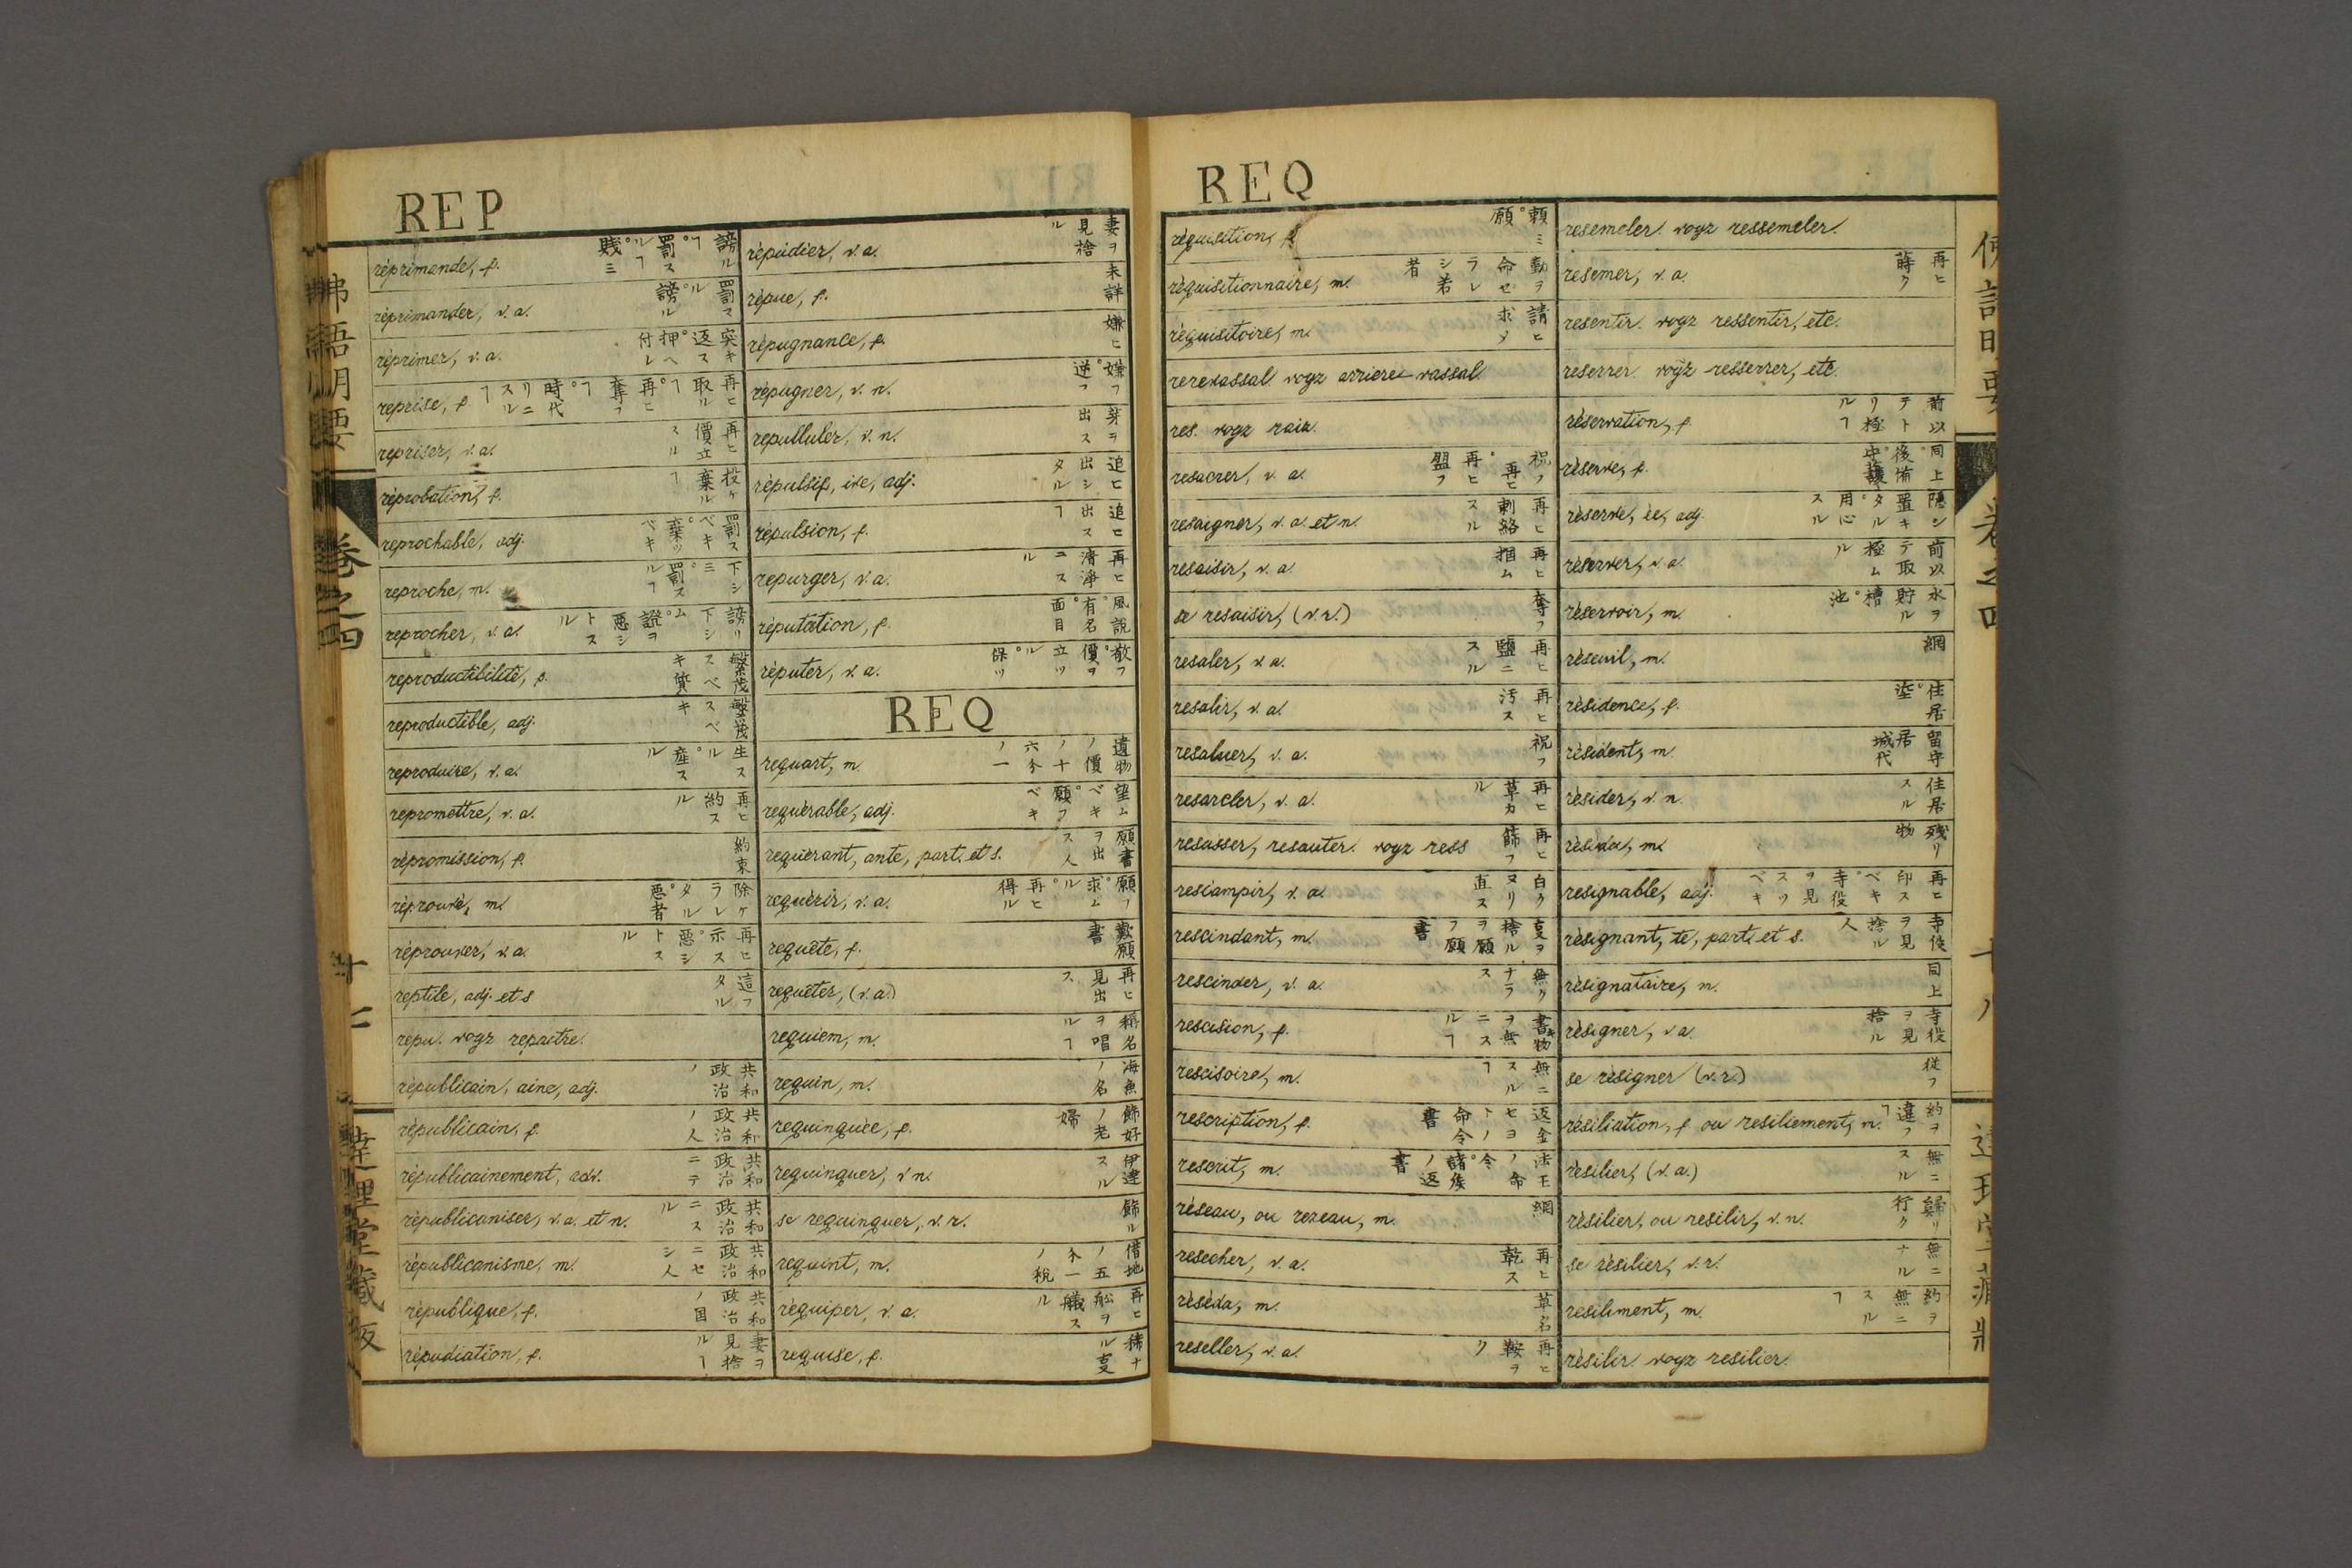 REP
réprimande, f. 謗ルヿ。罰スルヿ。賤ミ
réprimander, v. a. 罰スル。謗ル
réprimer, v. a. 突キ返ス。押ヘ付レ
reprise, f. 再ヒ取ルヿ。再ヒ奪フヿ。時代リニスルヿ
repriser, v. a. 再ヒ價立スル
réprobation, f. 投ケ棄ルヿ
reprochable, adj. 罰スベキ。棄ツベキ
reproche, m. 下シミ。罰スルヿ
reprocher, v. a. 謗リ下シム。證ヲ悪シトスル
reproductibilité, f. 繁茂スベキ質
reproductible, adj. 繁茂スベキ
reproduire, v. a. 生スル。産スル
repromettre, v. a. 再ヒ約スル
répromission, f. 約束
réprouvé, m. 除ケラレタル。悪者
réprouver, v. a. 再ヒ示ス。悪シトスル
reptile, adj. et s 這フタル
repu. voyz repaître.
républicain, aine, adj. 共和政治ノ
républicain, f. 共和政治ノ人
républicainement, adv. 共和政治ニテ
républicaniser, v. a. et n. 共和政治ニスル
républicanisme, m. 共和政治ニセシ人
république, f. 共和政治ノ国
répudiation, f. 妻ヲ見捨ルヿ
répudier, v. a. 妻ヲ見捨ル
répue, f. 未詳
répugnance, f. 嫌ヒ
répugner, v. n. 嫌フ。逆フ
repulluler, v. n. 芽ヲ出ス
répulsif, ive, adj. 追ヒ出シタル
répulsion, f. 追ヒ出スヿ
repurger, v. a. 再ヒ清浄ニスル
réputation, f. 風説。有名。面目
réputer, v. a. 敬フ。價ヲ立ツル。保ツ
REQ
requart, m. 遺物ノ價ノ十六分ノ一
requérable, adj. 望ムベキ。願フベキ
requérant, ante, part. et s. 願書ヲ出ス人
requérir, v. a. 願フ。求ムル。再ヒ得ル
requête, f. 歎願書
requêter, (v. a.) 再ヒ見出ス
requiem, m. 稱名ヲ唱ルヿ
requin, m. 海魚ノ名
requinquée, f. 飾好ノ老婦
requinquer, v n. 伊達スル
se requinquer, v. r. 飾ル
requint, m. 借地ノ五分一ノ税
réquiper, v. a. 再ヒ舩ヲ艤スル
requise, f. 稀ナル叓
REQ
réquisition, f. 頼ミ。願
réquisitionnaire, m. 勤ヲ命セラレシ若者
réquisitoire, m. 請ヒ求メ
rerevassal voyz arriere-vassal
res. voyz raiz.
resacrer, v. a. 祝フ。再ヒ再ヒ盟フ
resaigner, v. a. et n. 再ヒ刺絡スル
resaisir, v. a. 再ヒ掴ム
se resaisir, (v. r.) 奪フ
resaler, v. a. 再ヒ鹽ニスル
resalir, v. a. 再ヒ汚ス
resaluer, v. a. 祝フ
resarcler, v. a. 再ヒ草カル
resasser, resauter. voyz ress 再ヒ篩フ
rescampir, v. a. 白クヌリ直ス
rescindant, m. 叓ヲ捨ルヲ願フ願書
rescinder, v. a. 無クナラス
rescision, f. 書物ヲ無ニスルヿ
rescisoire, m. 無ニスルヿ
rescription, f. 返金セヨトノ命令書
rescrit, m. 法王ノ命令。諸侯ノ返書
réseau, ou rezeau, m. 網
resecher, v. a. 再ヒ乾ス
réséda, m. 草名
reseller, v. a. 再ヒ鞍ヲク
resemeler. voyz ressemeler.
resemer, v. a. 再ヒ蒔ク
resentir. voyz ressentir, etc.
reserrer. voyz resserrer, etc.
réservation, f. 前以テトリ極ルヿ
réserve, f. 同上。後備
réservé, ée, adj. 隠シ置キタル。用心スル
réserver, v. a. 前以テ取極ムル
réservoir, m. 水ヲ貯ル槽。池
réseuil, m. 網
résidence, f. 住居
résident, m. 留守居 城代
résider, v. n. 住居スル
résidu, m. 残リ物
resignable, adj. 再ヒ印スベキ。寺役ヲ見スツベキ
résignant, te, part. et s. 寺役ヲ見捨ル人
résignataire, m. 同上
résigner, v. a. 寺役ヲ見捨ル
se résigner (v. r.) 従フ
résiliation, f. ou resiliement, m. 約ヲ違フヿ
résilier, (v. a.) 無ニスル
résilier, ou resilir, v. n. 歸リ行ク
se résilier, v. r. 無ニナル
resiliment, m. 約ヲ無ニスルヿ
résilir. voyz resilier.
卷之四
十八